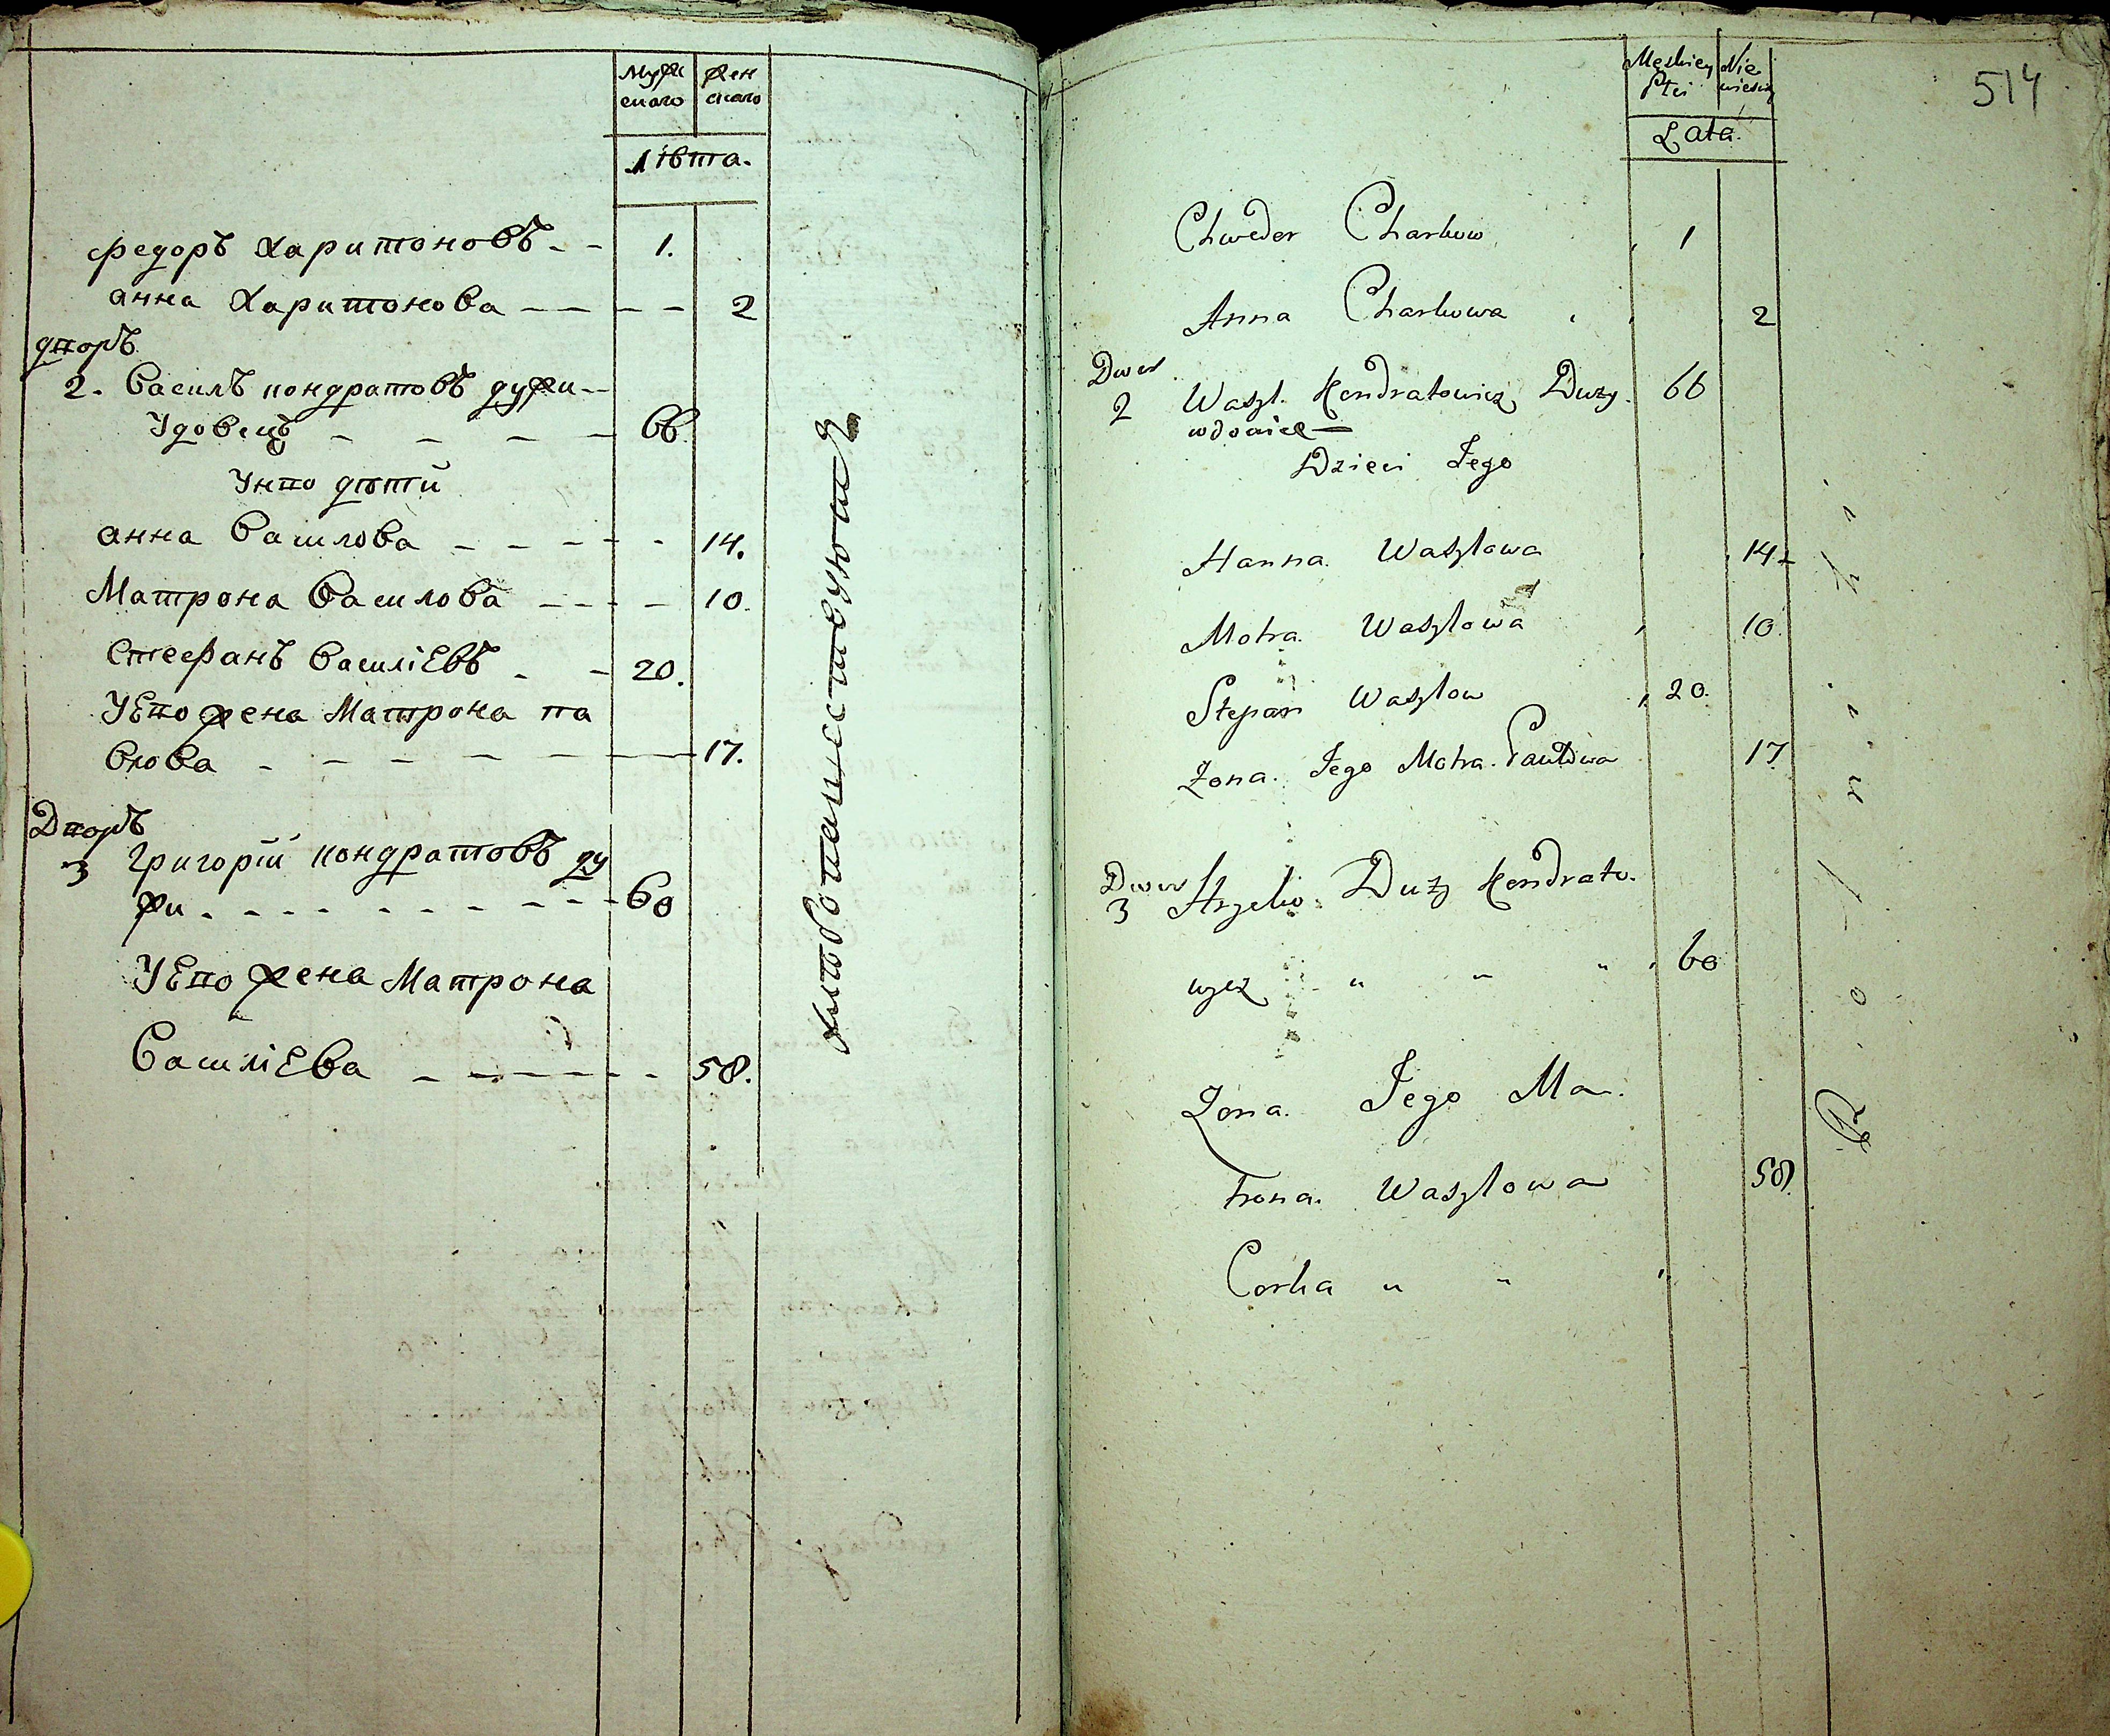 Мужескаго
женскаго
Лѣта.
Федоръ Харитоновъ 1.
анна Харитонова 2
дворъ
2. Василь кондратовъ дужи
Удовецъ 66.
Унво дѣти
анна Василова 14.
Матрона Василова 10.
Стефанъ Василіевъ 20.
УЕво жена Матрона па
влова 17.
Дворъ
3 Григорій кондратовъ ду
жи 60
УЕво жена Матрона
Василіева 58.
хлѣбопашествуютъ
514
Męskiey Płci
Niewiesciey
Lata.
Chweder Charkow 1
Anna Charkowa 2
Dwor
2 Waszl. Kondratowicz Duzy. 66
wdowiec
Dzieci Jego
Hanna Waszlowa 14
Motra Waszlowa 10.
Stepan Waszlow 20.
Zona Jego Motra Pawlowa 17
Dwor
3 Hrycko Duzy Kondrato.
wycz " " " 60
Zona Jego Ma.
trona Waszlowa 58.
Corka " "
Rolnicy